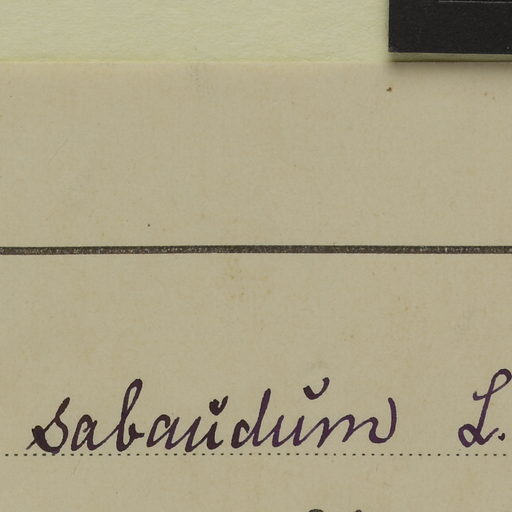 sabaudum L.